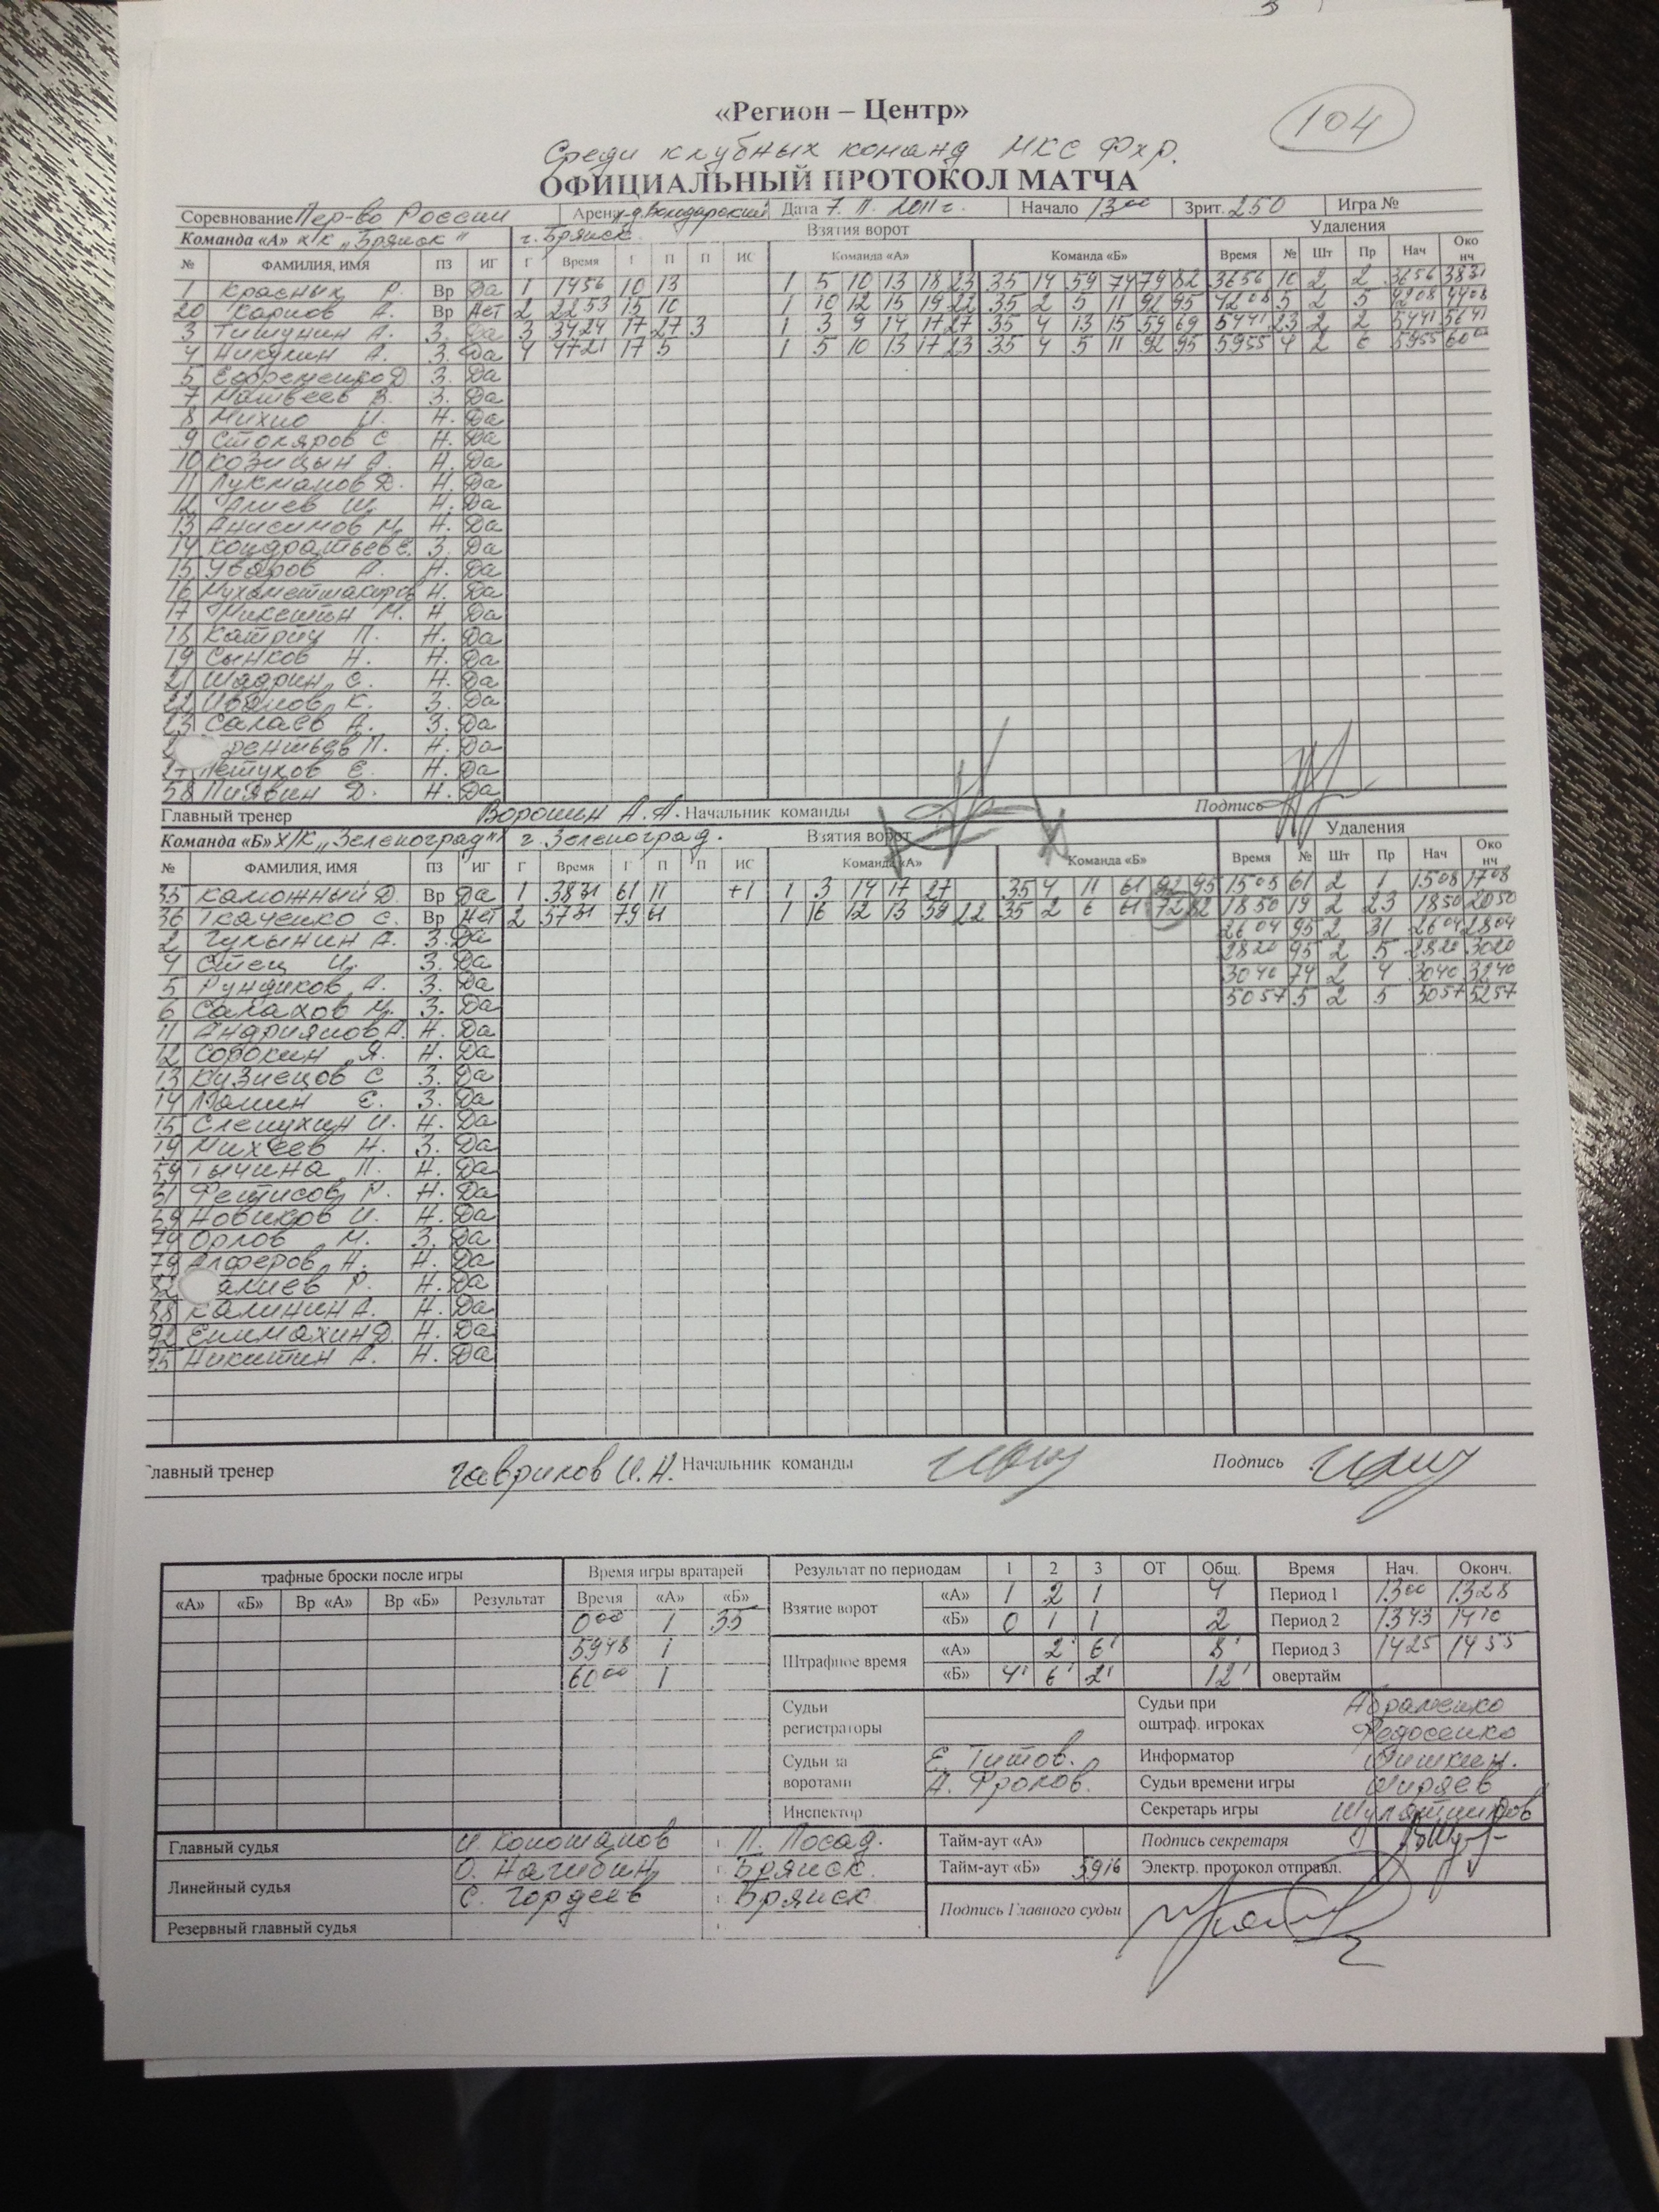 104
«Регион – Центр»
Среди клубных команд МКС ФХР.
ОФИЦИАЛЬНЫЙ ПРОТОКОЛ МАТЧА
Соревнование Пер-во России Арена Дата 7. 11. 2011г. Начало 13 00 Зрит. 250 Игра №
Команда «А» х/к „Брянск“ г. Брянск Взятия ворот Удаления
№ ФАМИЛИЯ, ИМЯ ПЗ ИГ Г Время Г П П ИС Команда «А» Команда «Б» Время № Шт Пр Нач Оконч
1 Красных Р. Вр Да 1 1456 10 13 1 5 10 13 18 23 35 14 59 74 79 82 3656 10 2 2 3656 3831
20 Карпов А. Вр Нет 2 2253 15 10 1 10 12 15 19 22 35 2 5 11 92 95 4208 5 2 5 4208 4408
3 Тишунин А. З. Да 3 3424 17 27 3 1 3 9 14 17 27 35 4 13 15 59 69 5441 23 2 2 5441 5641
4 Никулин А. З. Да 4 4721 17 5 1 5 10 13 17 23 35 4 5 11 92 95 5955 4 2 6 5955 6000
5 Ефременко Д. З. Да
7 Матвеев В. З. Да
8 Михно И. Н. Да
9 Столяров С Н. Да
10 Козицын А. Н. Да
11 Лукманов Д. Н. Да
12 Алиев Ш. Н. Да
13 Анисимов М. Н. Да
14 Кондратьев Е. З. Да
15 Уваров А. Н. Да
16 Н. Да
17 Микешин М. Н. Да
18 Катрич П. Н. Да
19 Сынков Н. Н. Да
21 Шадрин С. Н. Да
22 Иванов К. З. Да
23 Салаев А. З. Да
рентьев П. Н. Да
27 Петухов Е. Н. Да
58 Пиявин Д. Н. Да
Главный тренер Ворошин А.А. Начальник команды Подпись
Команда «Б» Х/К „Зеленоград“ г. Зеленоград. Взятия ворот Удаления
№ ФАМИЛИЯ, ИМЯ ПЗ ИГ Г Время Г П П ИС Команда «А» Команда «Б» Время № Шт Пр Нач Оконч
35 Каможный Д. Вр Да 1 3831 61 11 +1 1 3 14 17 27 35 4 11 61 92 95 1508 61 2 1 1508 1708
36 Ткаченко С. Вр Нет 2 5731 79 61 1 6 12 13 58 22 35 2 6 61 72 82 1850 19 2 23 1850 2050
2 Гукынин А. З. Да 2604 95 2 31 2604 2804
4 Отец И. З. Да 2820 95 2 5 2820 3020
5 Рундиков А. З. Да 3040 74 2 4 3040 3240
6 Салахов М. З. Да 5057 5 2 5 5057 5257
11 Андриянов А. Н. Да
12 Сорокин Я. Н. Да
13 Кузнецов С З. Да
14 Лямин Е. З. Да
15 Слепухин И. Н. Да
19 Михеев Н. З. Да
59 Тычина П. Н. Да
61 Фетисов Р. Н. Да
69 Новиков И. Н. Да
74 Орлов М. З. Да
79 Алферов Н. Н. Да
82 алиев Р. Н. Да
88 Калинин А. Н. Да
92 Епимахин Д. Н. Да
95 Никитин А. Н. Да
Главный тренер Гавриков И.Н. Начальник команды Подпись
трафные броски после игры Время игры вратарей Результат по периодам 1 2 3 ОТ Общ. Время Нач. Оконч.
«А» «Б» Вр «А» Вр «Б» Результат Время «А» «Б» Взятие ворот «А» 1 2 1 4 Период 1 13 00 13 28
0 00 1 35 «Б» 0 1 1 2 Период 2 13 43 14 10
5948 1 Штрафное время «А» 2' 6' 8' Период 3 14 25 14 55
60 00 1 «Б» 4' 6' 2' 12' овертайм
Судьи регистраторы Судьи при оштраф. игроках Абраменко
Федосенко
Судьи за воротами Е. Титов. Информатор Шишкин.
А. Фролов. Судьи времени игры Ширяев
Инспектор Секретарь игры
Главный судья И. Коношанов г. П. Посад. Тайм-аут «А» Подпись секретаря
Линейный судья О. Нагибин г. Брянск. Тайм-аут «Б» 5916 Электр. протокол отправл.
С. Гордеев г. Брянск Подпись Главного судьи
Резервный главный судья